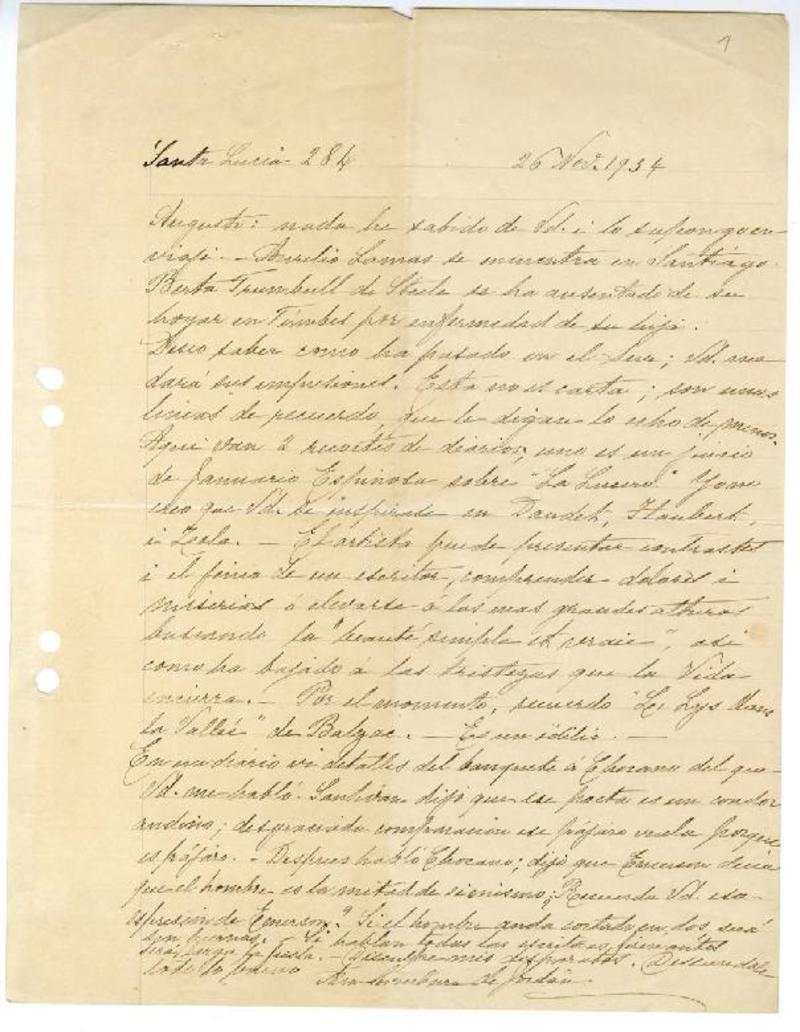 1
Santa Lucia 284 26 Nov. 1934
Augusto: nada he sabido de Vd. i lo supongo en
viaje. - Aurelio Lamas se encuentra en Santiágo.
Berta Trumbull de Steele se ha ausentado de su
hogar en Túmbes por enfermedad de su hijo.
Deseo saber como ha pasado en el Sur; Vd. me
dará sus impresiones. Esta no es carta; son unas
lineas de recuerdo, que le digan lo echo de menos.
Aqui van 2 recortes de diarios, uno es un juicio
de Januario Espinosa sobre "La Lucero." Yo
creo que Vd. se inspirado en Daudet, Flaubert,
i Zola. - El artista puede presentar contrastes
i el jénio de un escritor, comprender dolores i
miserias ó elevarse á las mas grandes alturas
buscando la "beauté simple et vraie", asi
como ha bajado á las tristezas que la Vida
encierra. - Por el momento, recuerdo "Le Lys dans
la Vallée" de Balzac. - Es un idilio. -
En un diário vi detalles del banquete á Chocano del que
Vd. me habló. Santiván dijo que ese poeta es un condor
andino; desgraciada comparacion ese pájaro vuela porque
es pájaro. - Despues habló Chocano; dijo que Emerson decia
que el hombre es la mitad de si mismo; Recuerda Vd. esa
espresion de Emerson? Si el hombre anda cortado en dos será
sin piernas. - Si hablan todos los
será larga la fiesta. - Disculpe mis disparates. Deseandole
todo lo bueno
de Jordán.